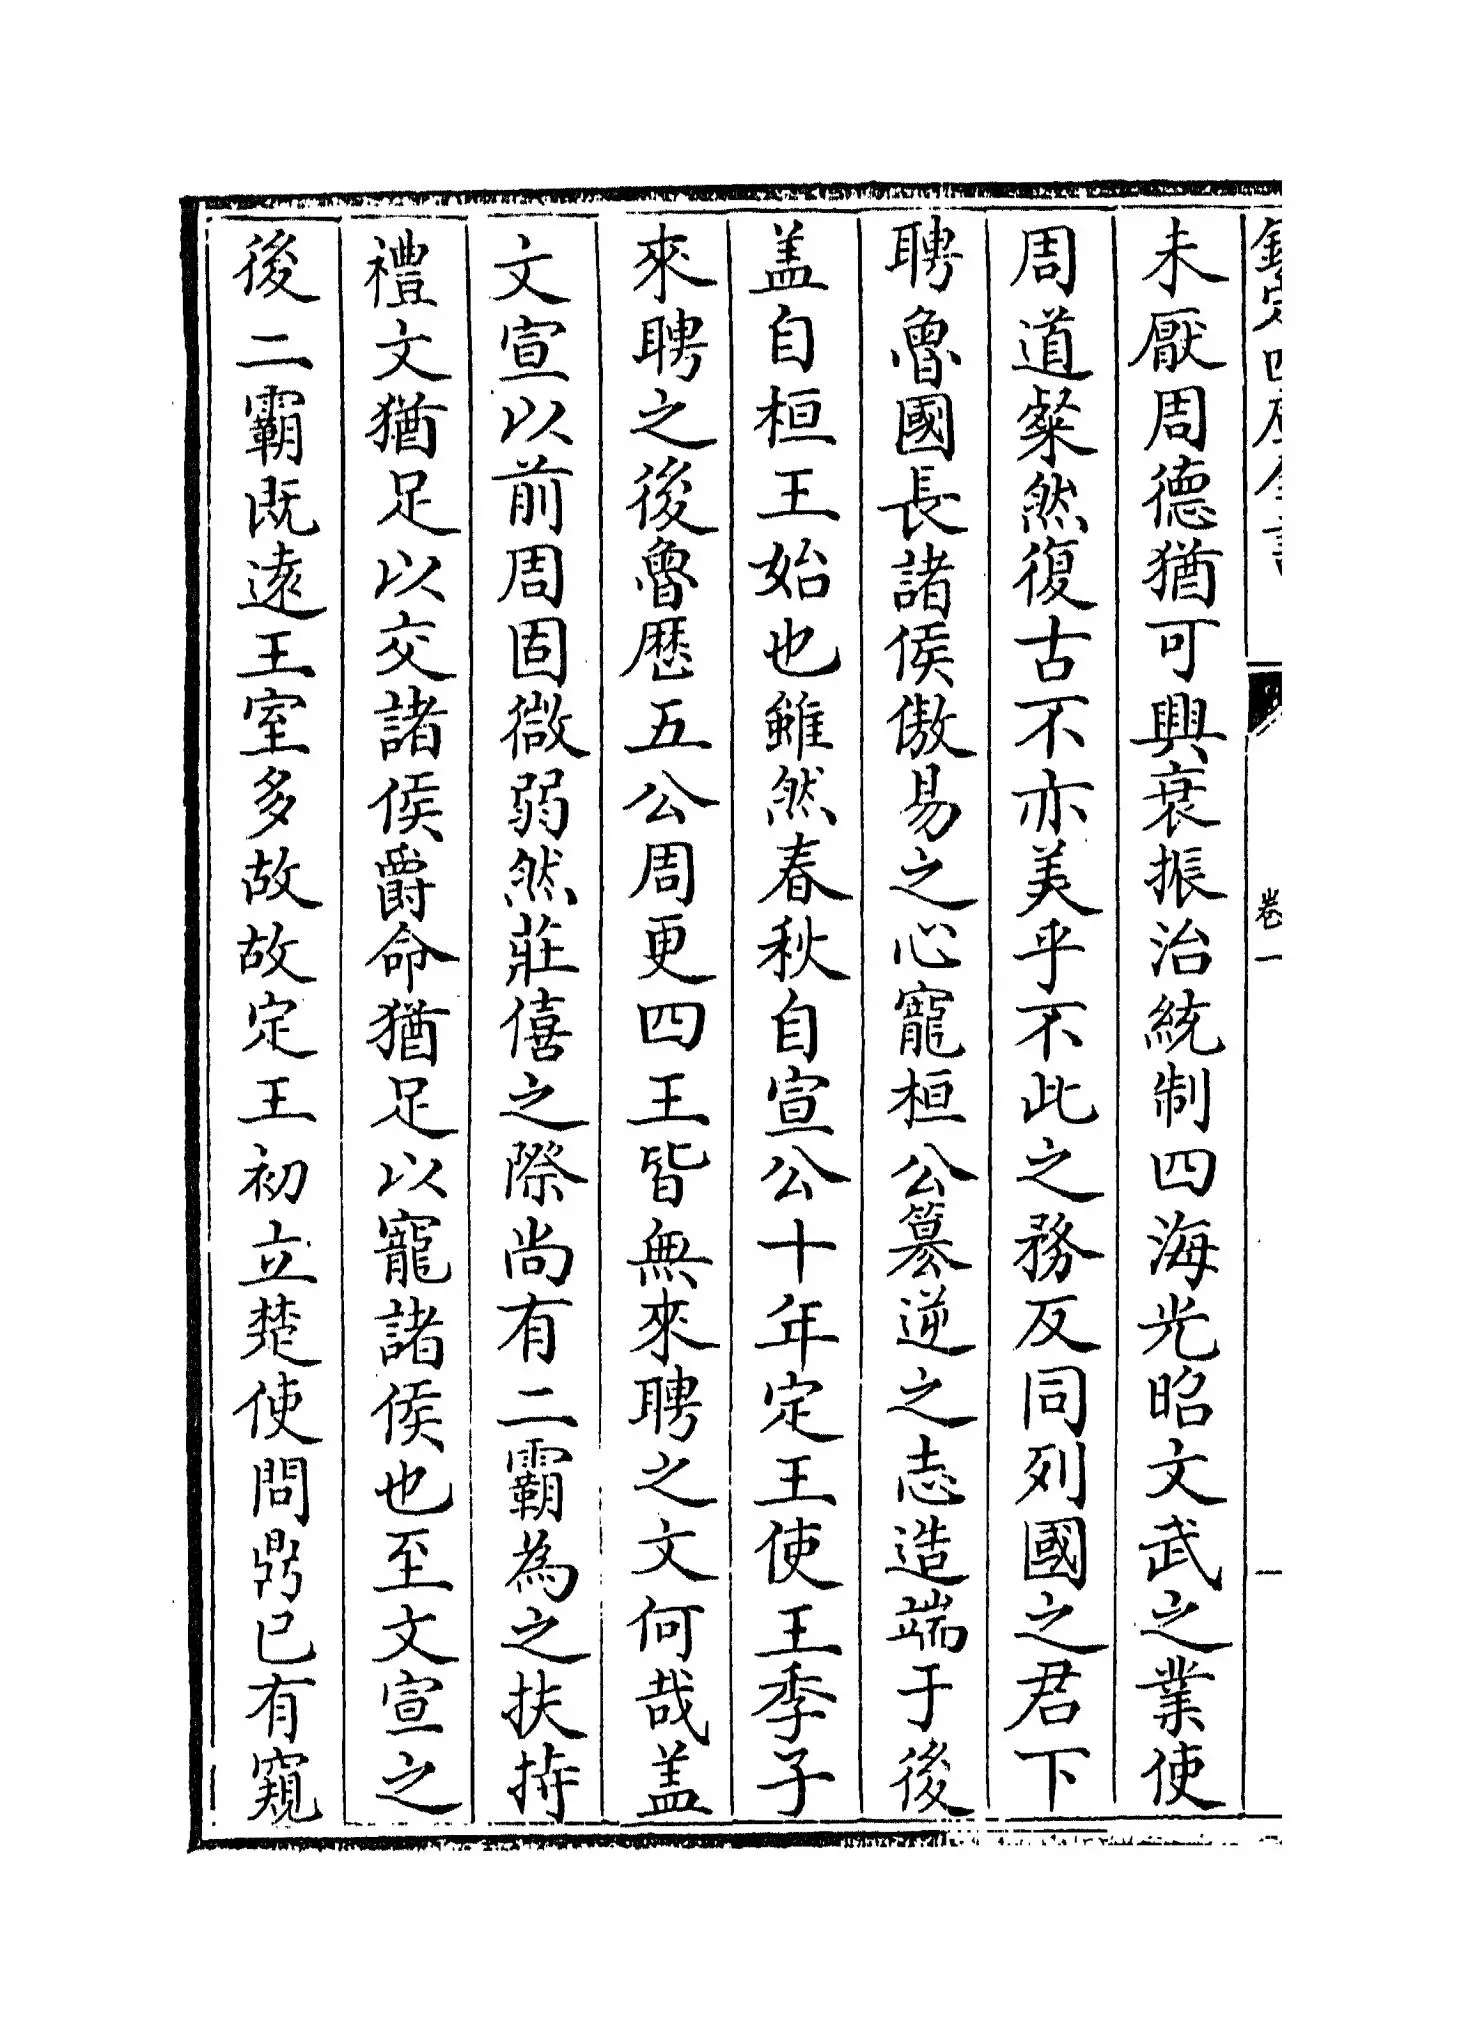 欽定四庫全書
卷一
未厭周德猶可興衰振治統制四海光昭文武之業使
周道粲然復古不亦美乎不此之務反同列國之君下
聘魯國長諸侯傲易之心寵桓公簒逆之志造端于後
盖自桓王始也雖然春秋自宣公十年定王使王季子
來聘之後魯歴五公周更四王皆無來聘之文何哉盖
文宣以前周固微弱然莊僖之際尚有二霸為之扶持
禮文猶足以交諸侯爵命猶足以寵諸侯也至文宣之
後二霸既逺王室多故故定王初立楚使問鼎已有窺